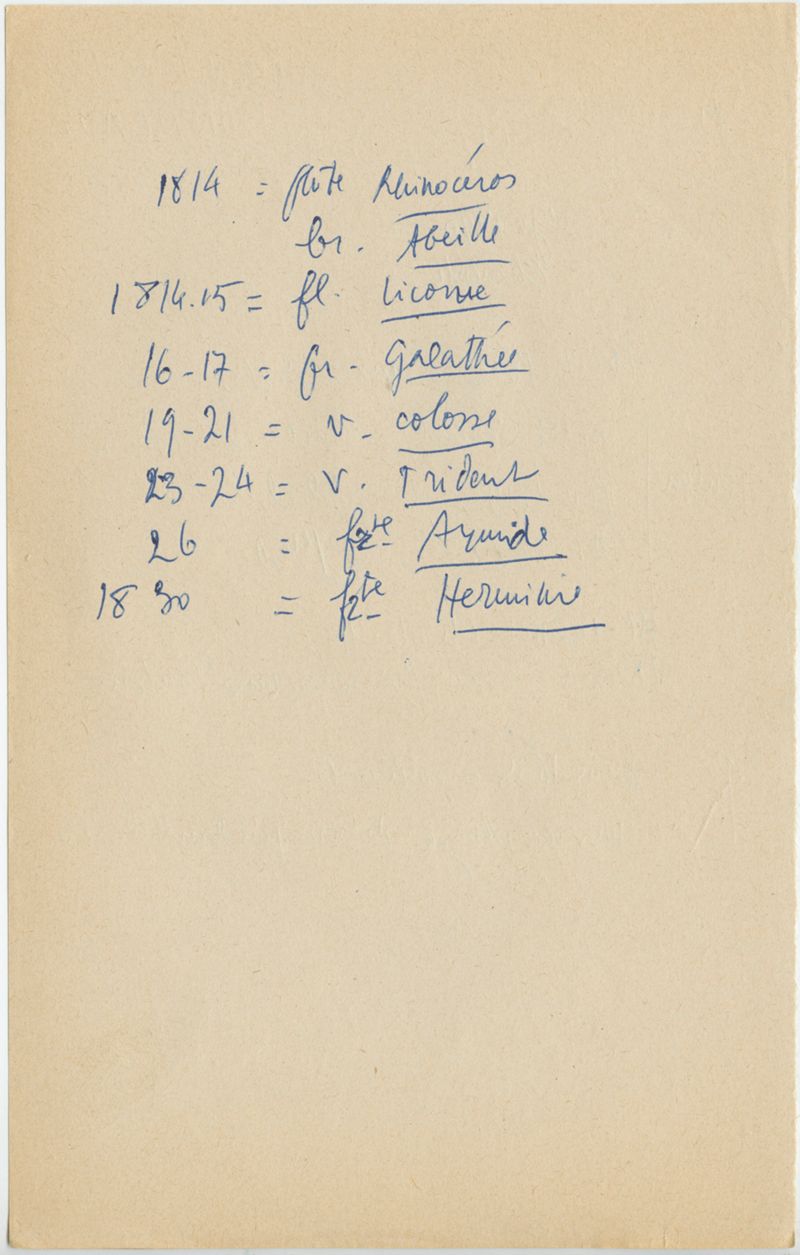 1814 = flûte Rhinocéros
br. Abeille
1814.15 = fl. Licorne
16-17 = fr. Galathée
19-21 = v. Colosse
23-24 = v. Trident
26 = fzte Armide
1830 = fzte Herminie